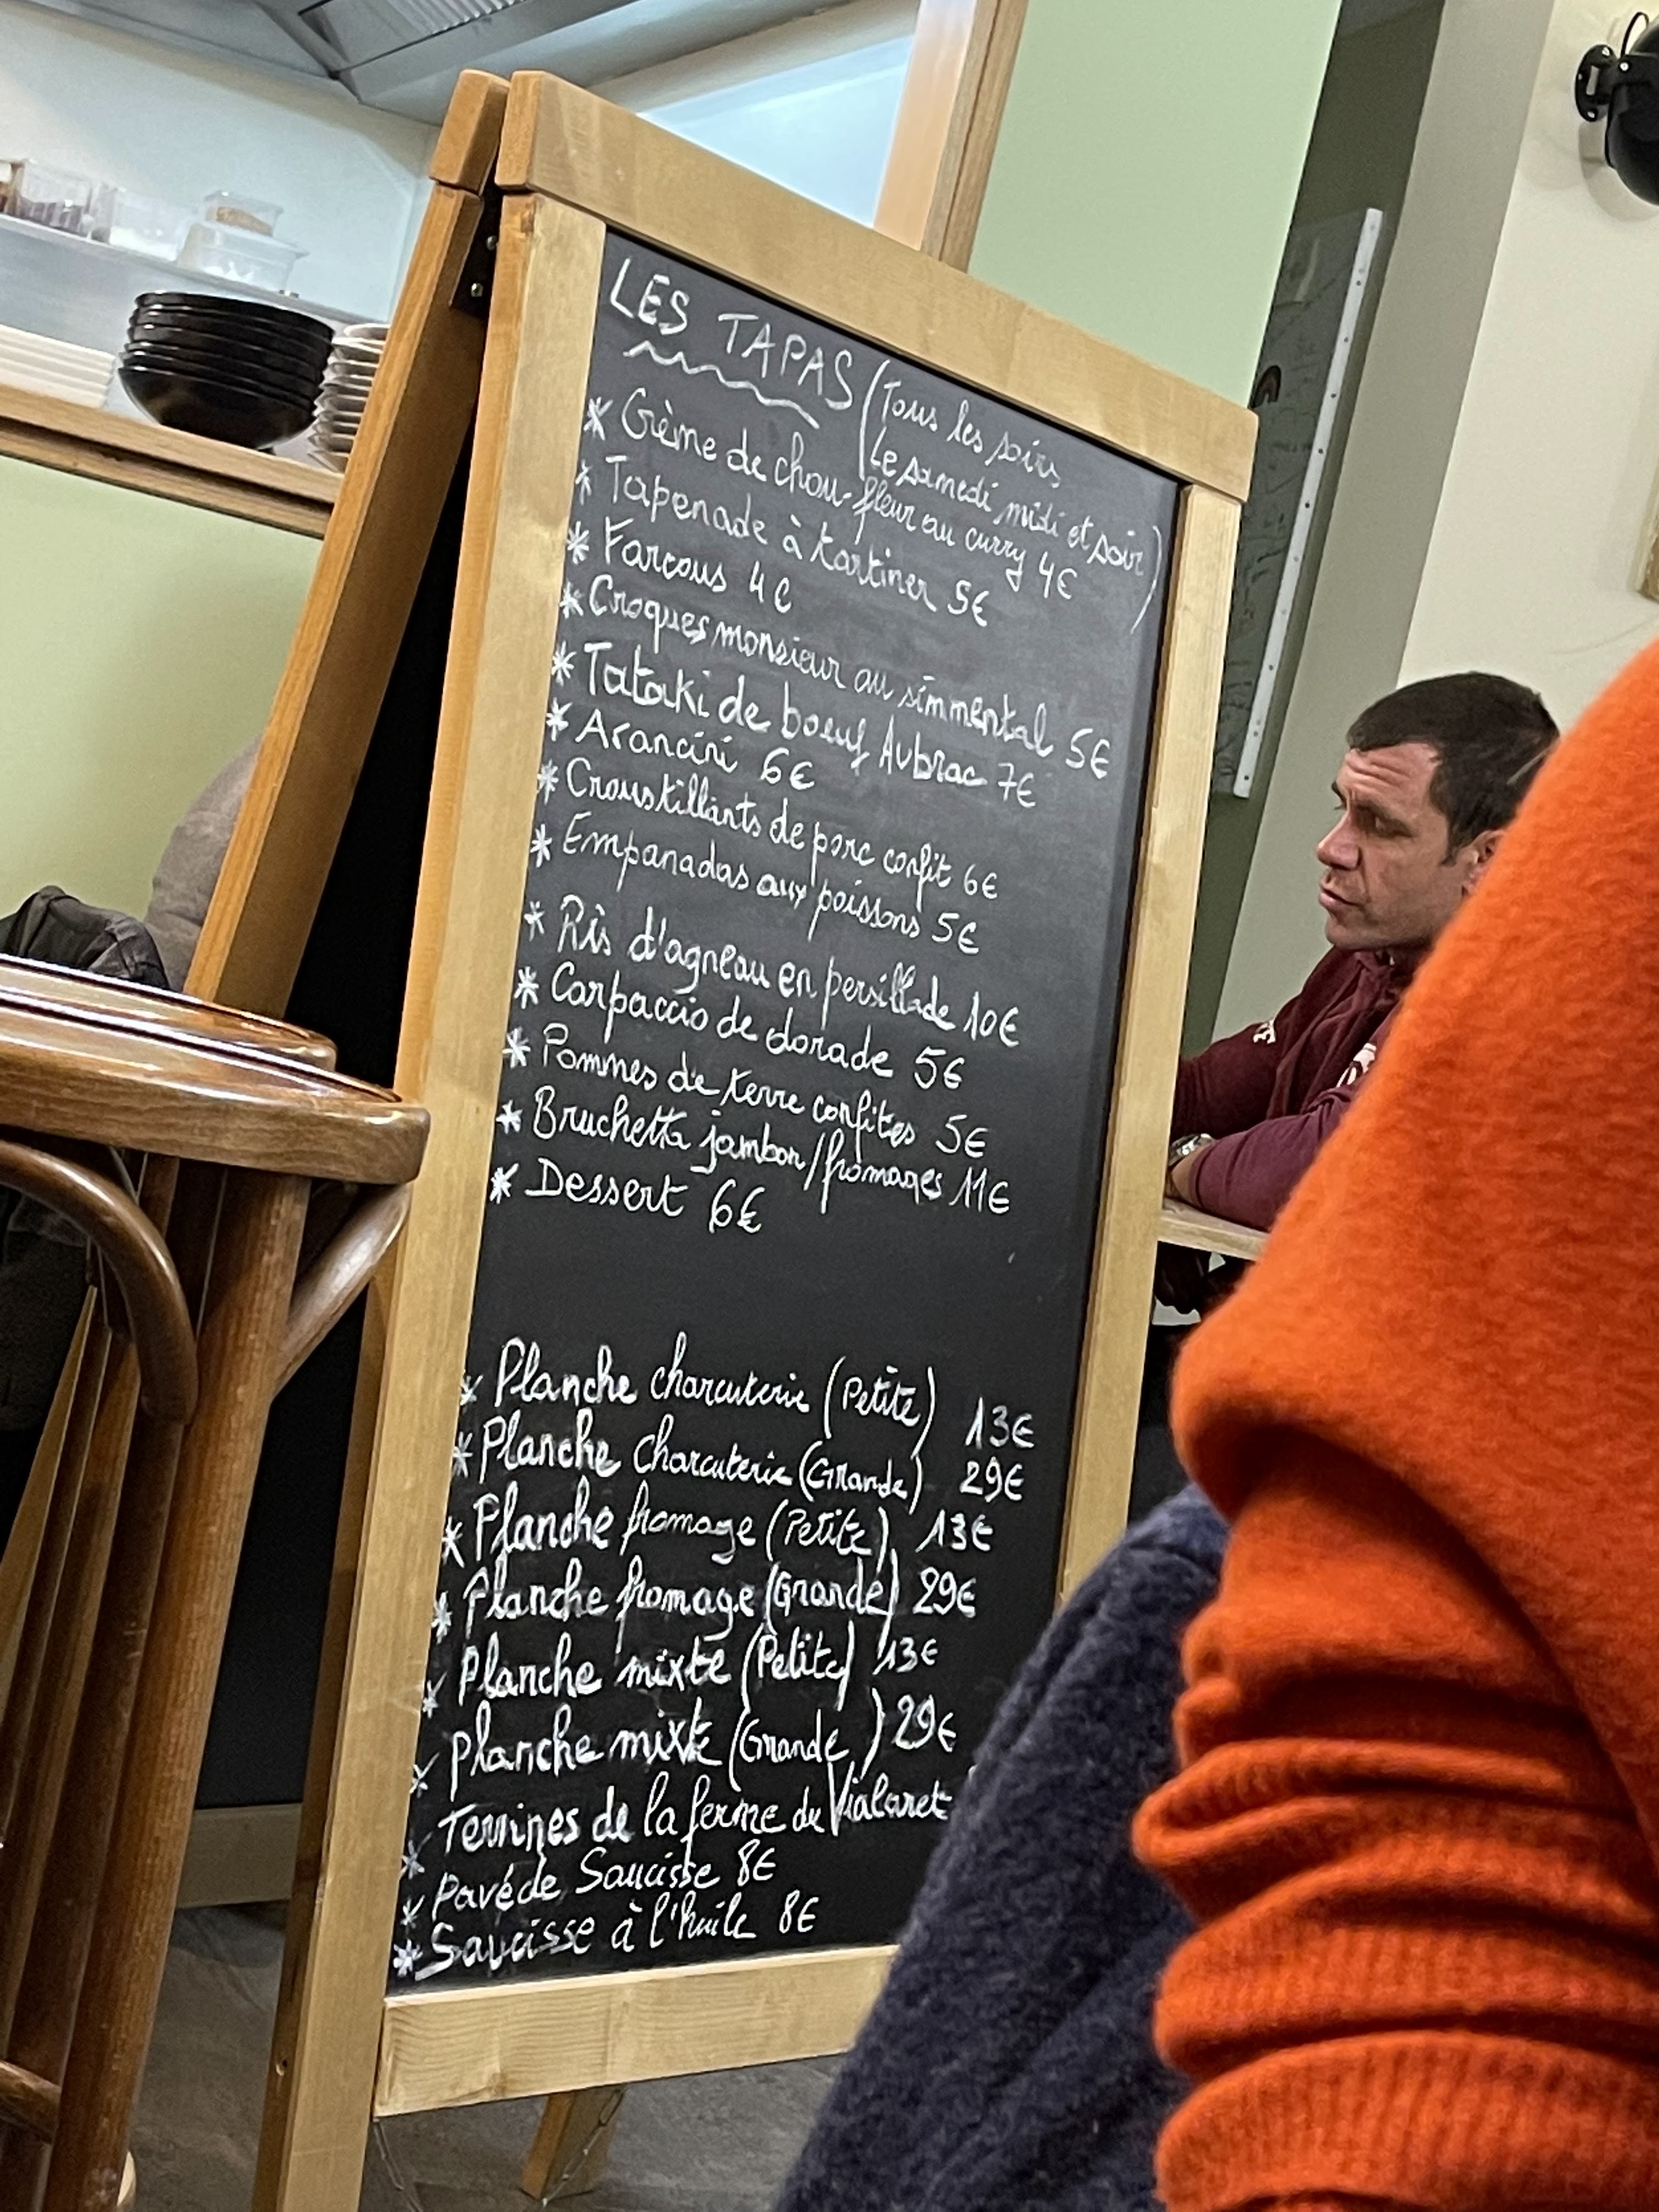 LES TAPAS (Tous les soirs
Le samedi midi et soir)
* Crème de chou-fleur au curry 4€
* Tapenade à tartiner 5€
* Farçous 4€
* Croques monsieur au simmental 5€
* Tataki de boeuf Aubrac 7€
* Arancini 6€
* Croustillants de porc confit 6€
* Empanadas aux poissons 5€
* Ris d'agneau en persillade 10€
* Carpaccio de dorade 5€
* Pommes de terre confites 5€
* Bruchetta jambon/fromages 11€
* Dessert 6€
* Planche charcuterie (Petite) 13€
* Planche charcuterie (Grande) 29€
* Planche fromage (Petite) 13€
* Planche fromage (Grande) 29€
* Planche mixte (Petite) 13€
* Planche mixte (Grande) 29€
* Terrines de la ferme du Vialaret
* Pavé de Saucisse 8€
* Saucisse à l'huile 8€